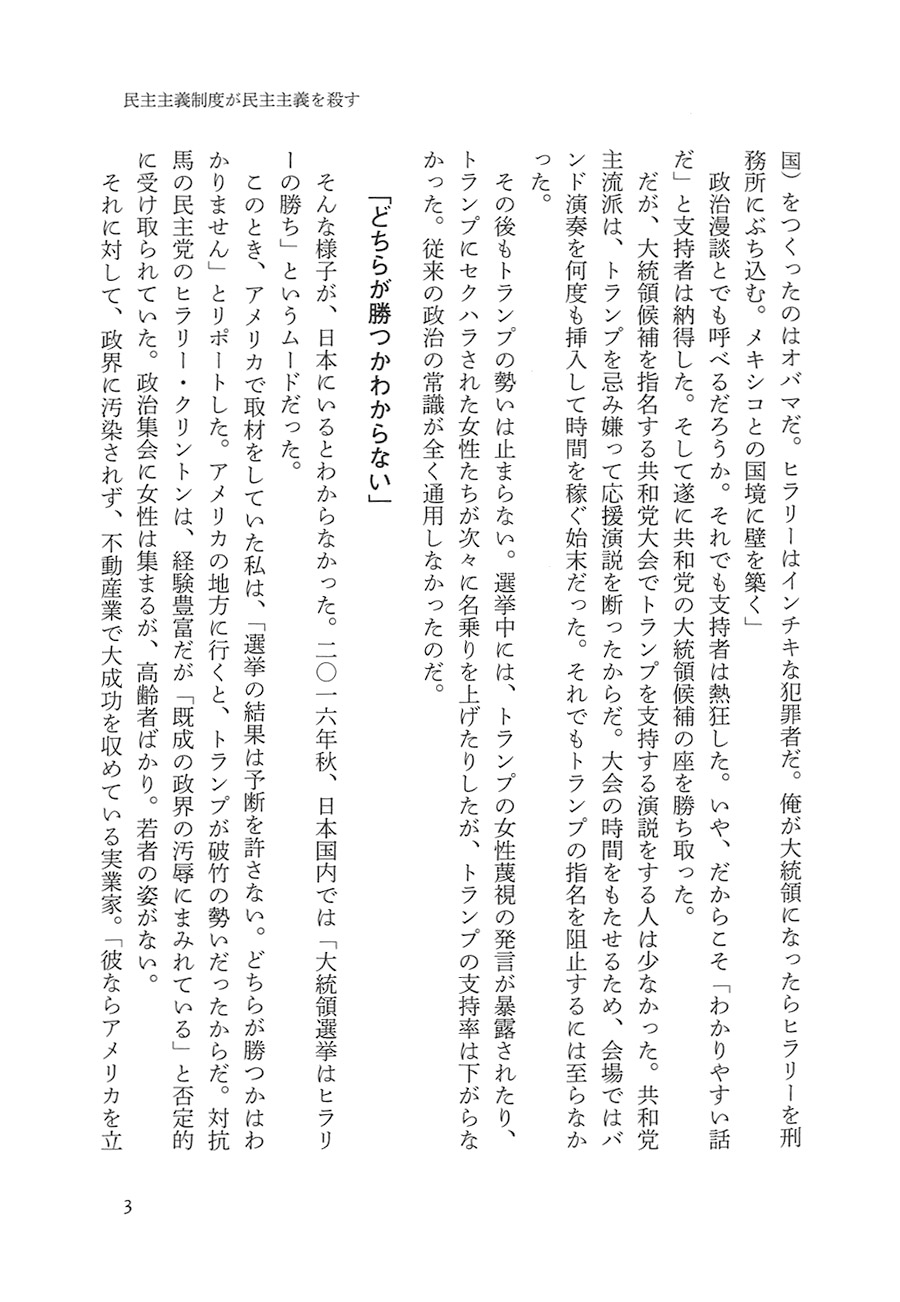 民主主義制度が民主主義を殺す
国）をつくったのはオバマだ。ヒラリーはインチキな犯罪者だ。俺が大統領になったらヒラリーを刑
務所にぶち込む。メキシコとの国境に壁を築く」
政治漫談とでも呼べるだろうか。それでも支持者は熱狂した。いや、だからこそ「わかりやすい話
だ」と支持者は納得した。そして遂に共和党の大統領候補の座を勝ち取った。
だが、大統領候補を指名する共和党大会でトランプを支持する演説をする人は少なかった。共和党
主流派は、トランプを忌み嫌って応援演説を断ったからだ。大会の時間をもたせるため、会場ではバ
ンド演奏を何度も挿入して時間を稼ぐ始末だった。それでもトランプの指名を阻止するには至らなか
った。
その後もトランプの勢いは止まらない。選挙中には、トランプの女性蔑視の発言が暴露されたり、
トランプにセクハラされた女性たちが次々に名乗りを上げたりしたが、トランプの支持率は下がらな
かった。従来の政治の常識が全く通用しなかったのだ。
「どちらが勝つかわからない」
そんな様子が、日本にいるとわからなかった。二〇一六年秋、日本国内では「大統領選挙はヒラリ
ーの勝ち」というムードだった。
このとき、アメリカで取材をしていた私は、「選挙の結果は予断を許さない。どちらが勝つかはわ
かりません」とリポートした。アメリカの地方に行くと、トランプが破竹の勢いだったからだ。対抗
馬の民主党のヒラリー・クリントンは、経験豊富だが「既成の政界の汚辱にまみれている」と否定的
に受け取られていた。政治集会に女性は集まるが、高齢者ばかり。若者の姿がない。
それに対して、政界に汚染されず、不動産業で大成功を収めている実業家。「彼ならアメリカを立
3